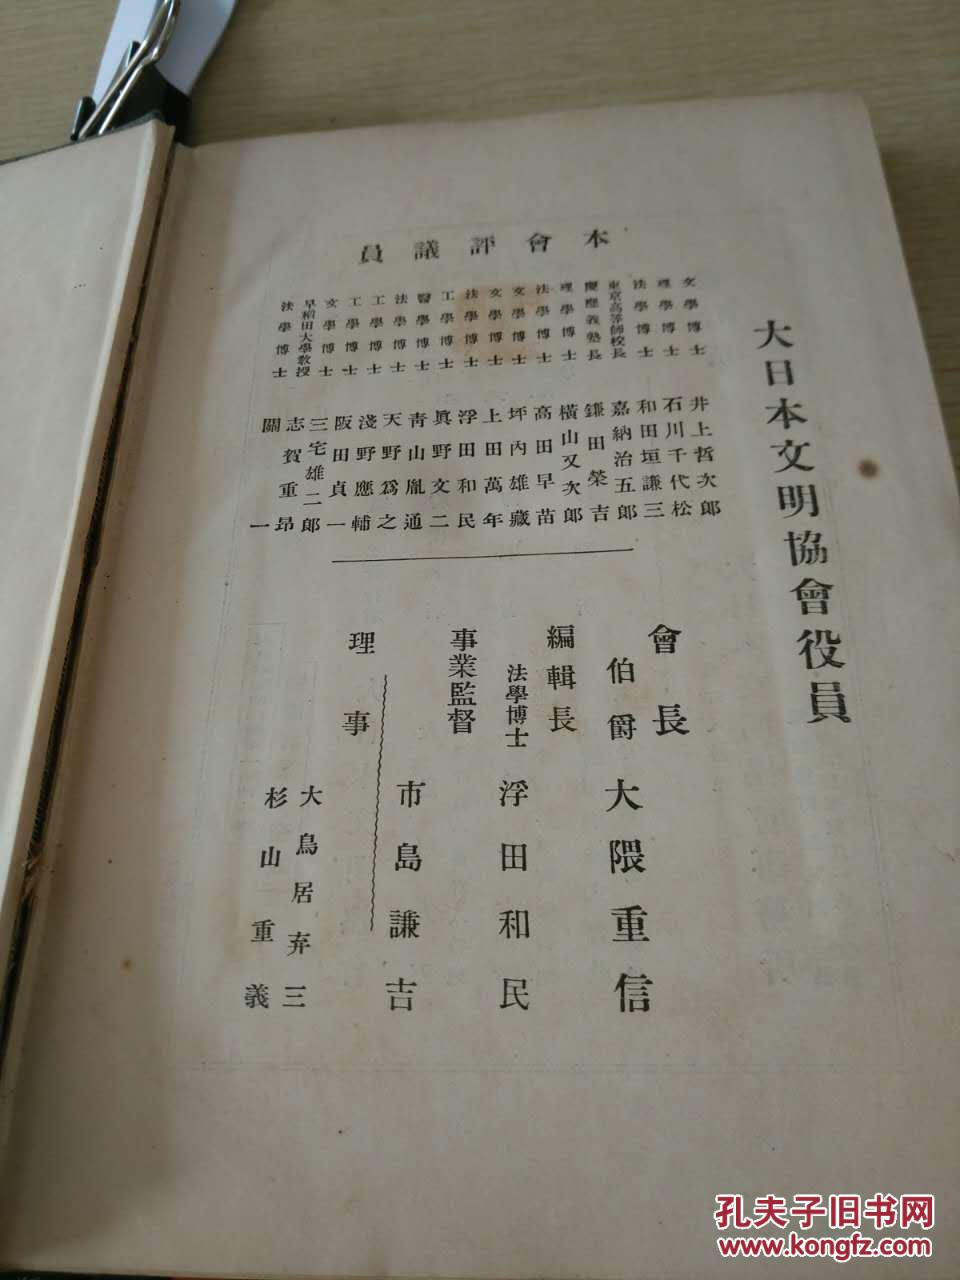 大日本文明協會役員
本會評議員
文學博士 井上哲次郎
理學博士 石川千代松
法學博士 和田垣謙三
東京高等師校長 嘉納治五郎
慶應義塾長 鎌田榮吉
理學博士 橫山又次郎
法學博士 高田早苗
文學博士 坪內雄藏
文學博士 上田萬年
法學博士 浮田和民
工學博士 眞野文二
醫學博士 青山胤通
法學博士 天野爲之
工學博士 淺野應輔
工學博士 阪田貞一
文學博士 三宅雄二郎
早稻田大學教授 志賀重昂
法學博士 關一
會長
伯爵 大隈重信
編輯長
法學博士 浮田和民
事業監督
市島謙吉
理事
大鳥居弃三
杉山重義
孔夫子旧书网
www.kongfz.com